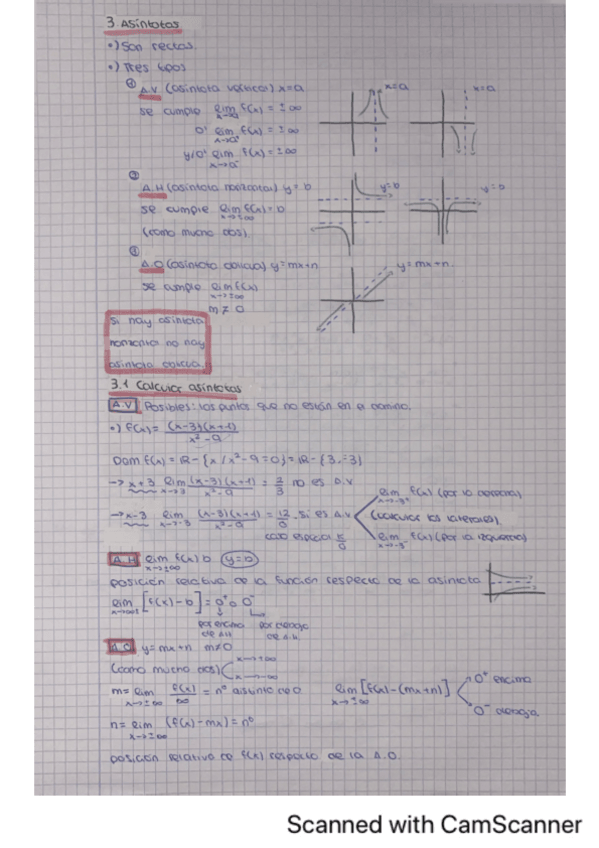 3 Asíntotas
•) Son rectas
•) Tres tipos
① A.V (asíntota vertical) x=a
se cumple lim f(x) = ±∞
x→a
o' lim f(x) = ±∞
x→a⁺
y/o' lim f(x) = ±∞
x→a⁻
x=a
x=a
② A.H (asíntota horizontal) y = b
se cumple lim f(x) = b
x→±∞
(como mucho dos).
y=b
y=0
③ A.O (asíntota oblicua) y=mx+n
se cumple lim f(x)
x→±∞
m≠0
y=mx+n
Si hay asíntota
horizontal no hay
asíntota oblicua.
3.1 Calcular asíntotas
A.V Posibles: los puntos que no están en el dominio.
•) f(x) = (x-3)(x+1)
x²-9
Dom f(x) = ℝ - {x / x²-9=0} = ℝ - {3,-3}
→ x→3 lim (x-3)(x+1) = 2 no es A.V
x→3 x²-9 3
→ x-3 lim (x-3)(x+1) = 12 . Sí es A.V
x→-3 x²-9 0
caso especial k
0
lim f(x) (por la derecha)
x→-3⁺
(calcular los laterales).
lim f(x) (por la izquierda)
x→-3⁻
A.H lim f(x) b (y=b)
x→±∞
posición relativa de la función respecto de la asíntota
lim [f(x)-b] = 0⁺ o 0⁻
x→±∞
por encima por debajo
de A.H de A.H
A.O y=mx+n m≠0
(como mucho dos) x→+∞
x→-∞
m= lim f(x) = nº distinto de 0
x→±∞ ∞
lim [f(x)-(mx+n)]
x→±∞
0⁺ encima
0⁻ debajo
n= lim (f(x)-mx) = nº
x→±∞
posición relativa de f(x) respecto de la A.O.
Scanned with CamScanner